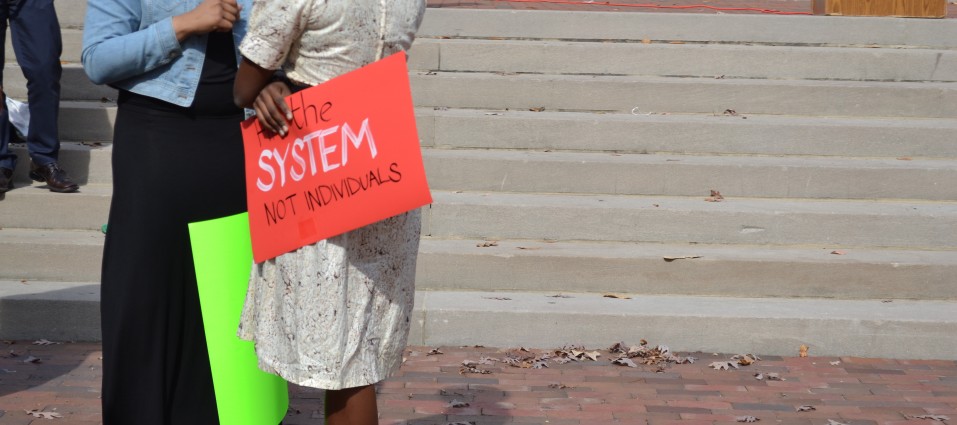 the
SYSTEM
NOT INDIVIDUALS